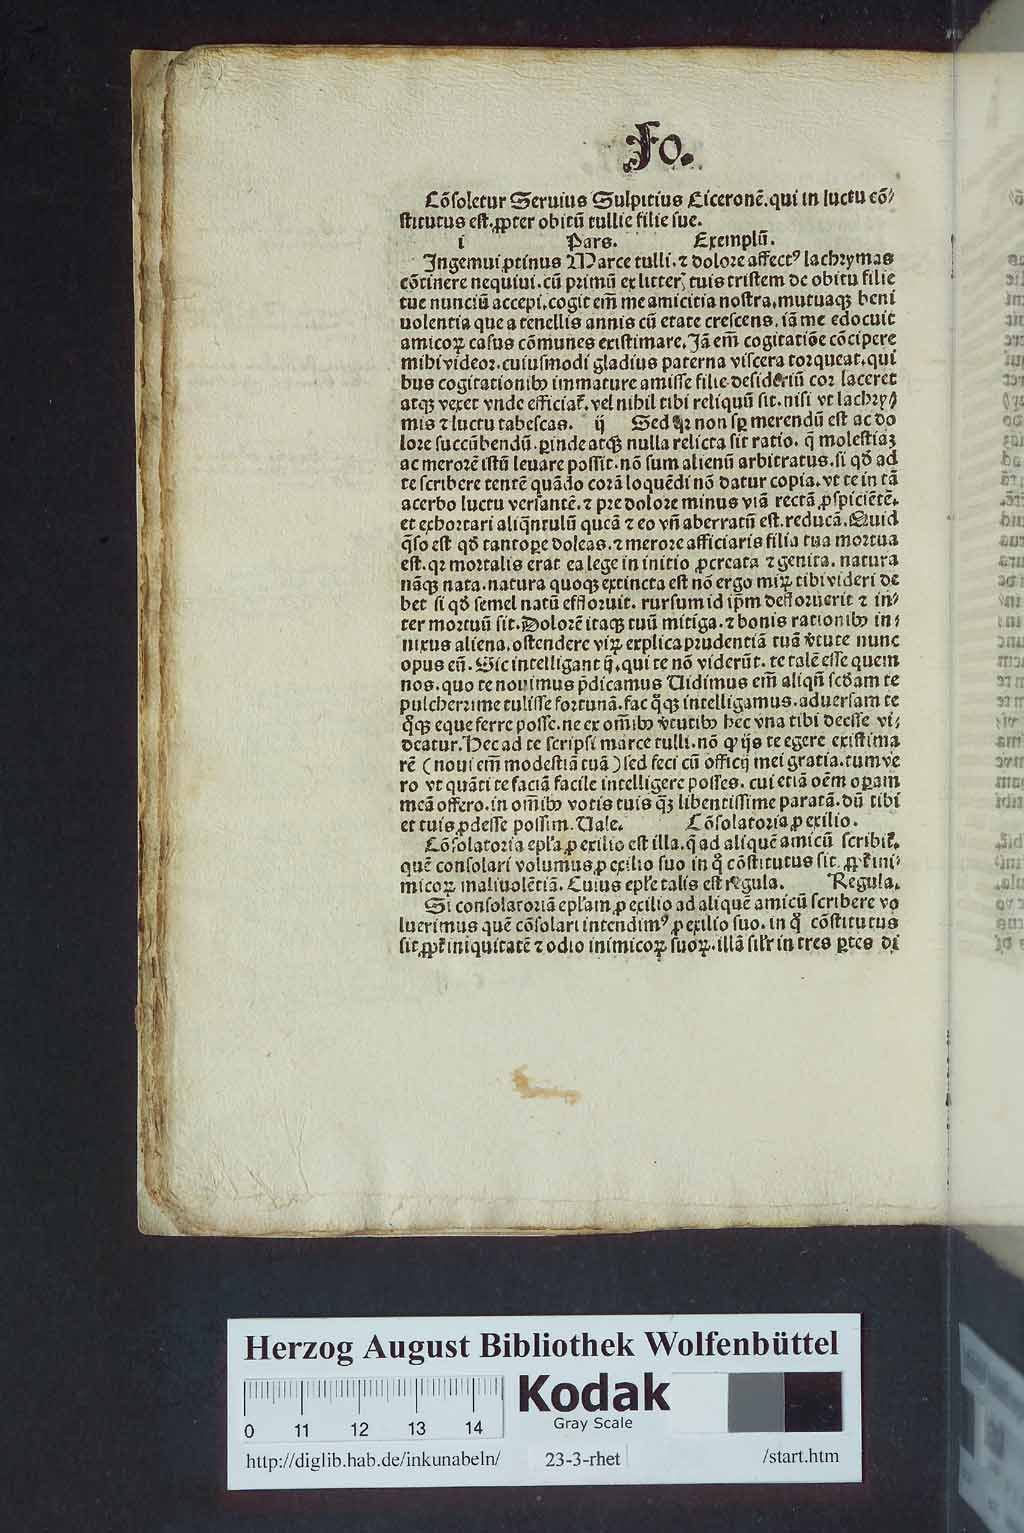 Fo.
Cōsoletur Seruius Sulpitius Ciceronē. qui in luctu cō⸗
stitutus est. ꝓpter obitū tullie filie sue.
i Pars. Exemplū.
Ingemui ꝓtinus Marce tulli. ⁊ dolore affectꝰ lachrymas
cōtinere nequiui. cū primū ex litterꝭ tuis tristem de obitu filie
tue nunciū accepi. cogit em̄ me amicitia nostra. mutuaqꝫ beni
uolentia que a tenellis annis cū etate crescens. iā me edocuit
amicoꝝ casus cōmunes existimare. Jā em̄ cogitatiōe cōcipere
mihi videor. cuiusmodi gladius paterna viscera torqueat. qui
bus cogitationibꝰ immature amisse filie desideriū cor laceret
atqꝫ vexet vnde efficiat᷑. vel nihil tibi reliquū sit. nisi vt lachry⸗
mis ⁊ luctu tabescas. ij Sed qꝛ non sꝑ merendū est ac do
lore succūbendū. ꝑinde atqꝫ nulla relicta sit ratio. q̄ molestiaꝫ
ac merorē istū leuare possit. nō sum alienū arbitratus. si qd̄ ad
te scribere tentē quādo corā loquēdi nō datur copia. vt te in tā
acerbo luctu versantē. ⁊ pre dolore minus viā rectā ꝓspiciētē.
et exhortari aliq̄ntulū queā ⁊ eo vn̄ aberratū est. reducā. Quid
q̄so est qd̄ tantopere doleas. ⁊ merore afficiaris filia tua mortua
est. qꝛ mortalis erat ea lege in initio ꝓcreata ⁊ genita. natura
nāqꝫ nata. natura quoqꝫ extincta est nō ergo miꝝ tibi videri de
bet si qd̄ semel natū effloruit. rursum id ip̄m defloruerit ⁊ in⸗
ter mortuū sit. Dolorē itaqꝫ tuū mitiga. ⁊ bonis rationibꝰ in⸗
nixus aliena. ostendere viꝝ explica prudentiā tuā v̄tute nunc
opus eū. Sic intelligant ij. qui te nō viderūt. te talē esse quem
nos. quo te nouimus p̄dicamus Uidimus em̄ aliqn̄ scd̄am te
pulcherrime tulisse fortunā. fac qͦqꝫ intelligamus. aduersam te
qͦqꝫ eque ferre posse. ne ex om̄ibꝰ v̄tutibꝰ hec vna tibi deesse vi⸗
deatur. Hec ad te scripsi marce tulli. nō ꝙ ijs te egere existima
rē (noui em̄ modestiā tuā) sed feci cū officij mei gratia. tum ve
ro vt quāti te faciā facile intelligere posses. cui etiā oēm operam
meā offero. in om̄ibꝰ votis tuis qꝫ libentissime paratā. dū tibi
et tuis ꝓdesse possim. Uale. Cōsolatoria ꝓ exilio.
Cōsolatoria ep̄la ꝓ exilio est illa. q̄ ad aliquē amicū scribit᷑.
quē consolari volumus ꝓ exilio suo in qͦ cōstitutus sit ꝓpt᷑ ini⸗
micoꝝ maliuolētiā. Cuius ep̄le talis est regula. Regula.
Si consolatoriā ep̄lam ꝓ exilio ad aliquē amicū scribere vo
luerimus quē cōsolari intendimꝰ ꝓ exilio suo. in qͦ cōstitutus
sit ꝓpt᷑ iniquitatē ⁊ odio inimicoꝝ suoꝝ. illā sil̄r in tres ꝑtes di
Herzog August Bibliothek Wolfenbüttel
Kodak
Gray Scale
0 11 12 13 14
http://diglib.hab.de/inkunabeln/ 23-3-rhet /start.htm